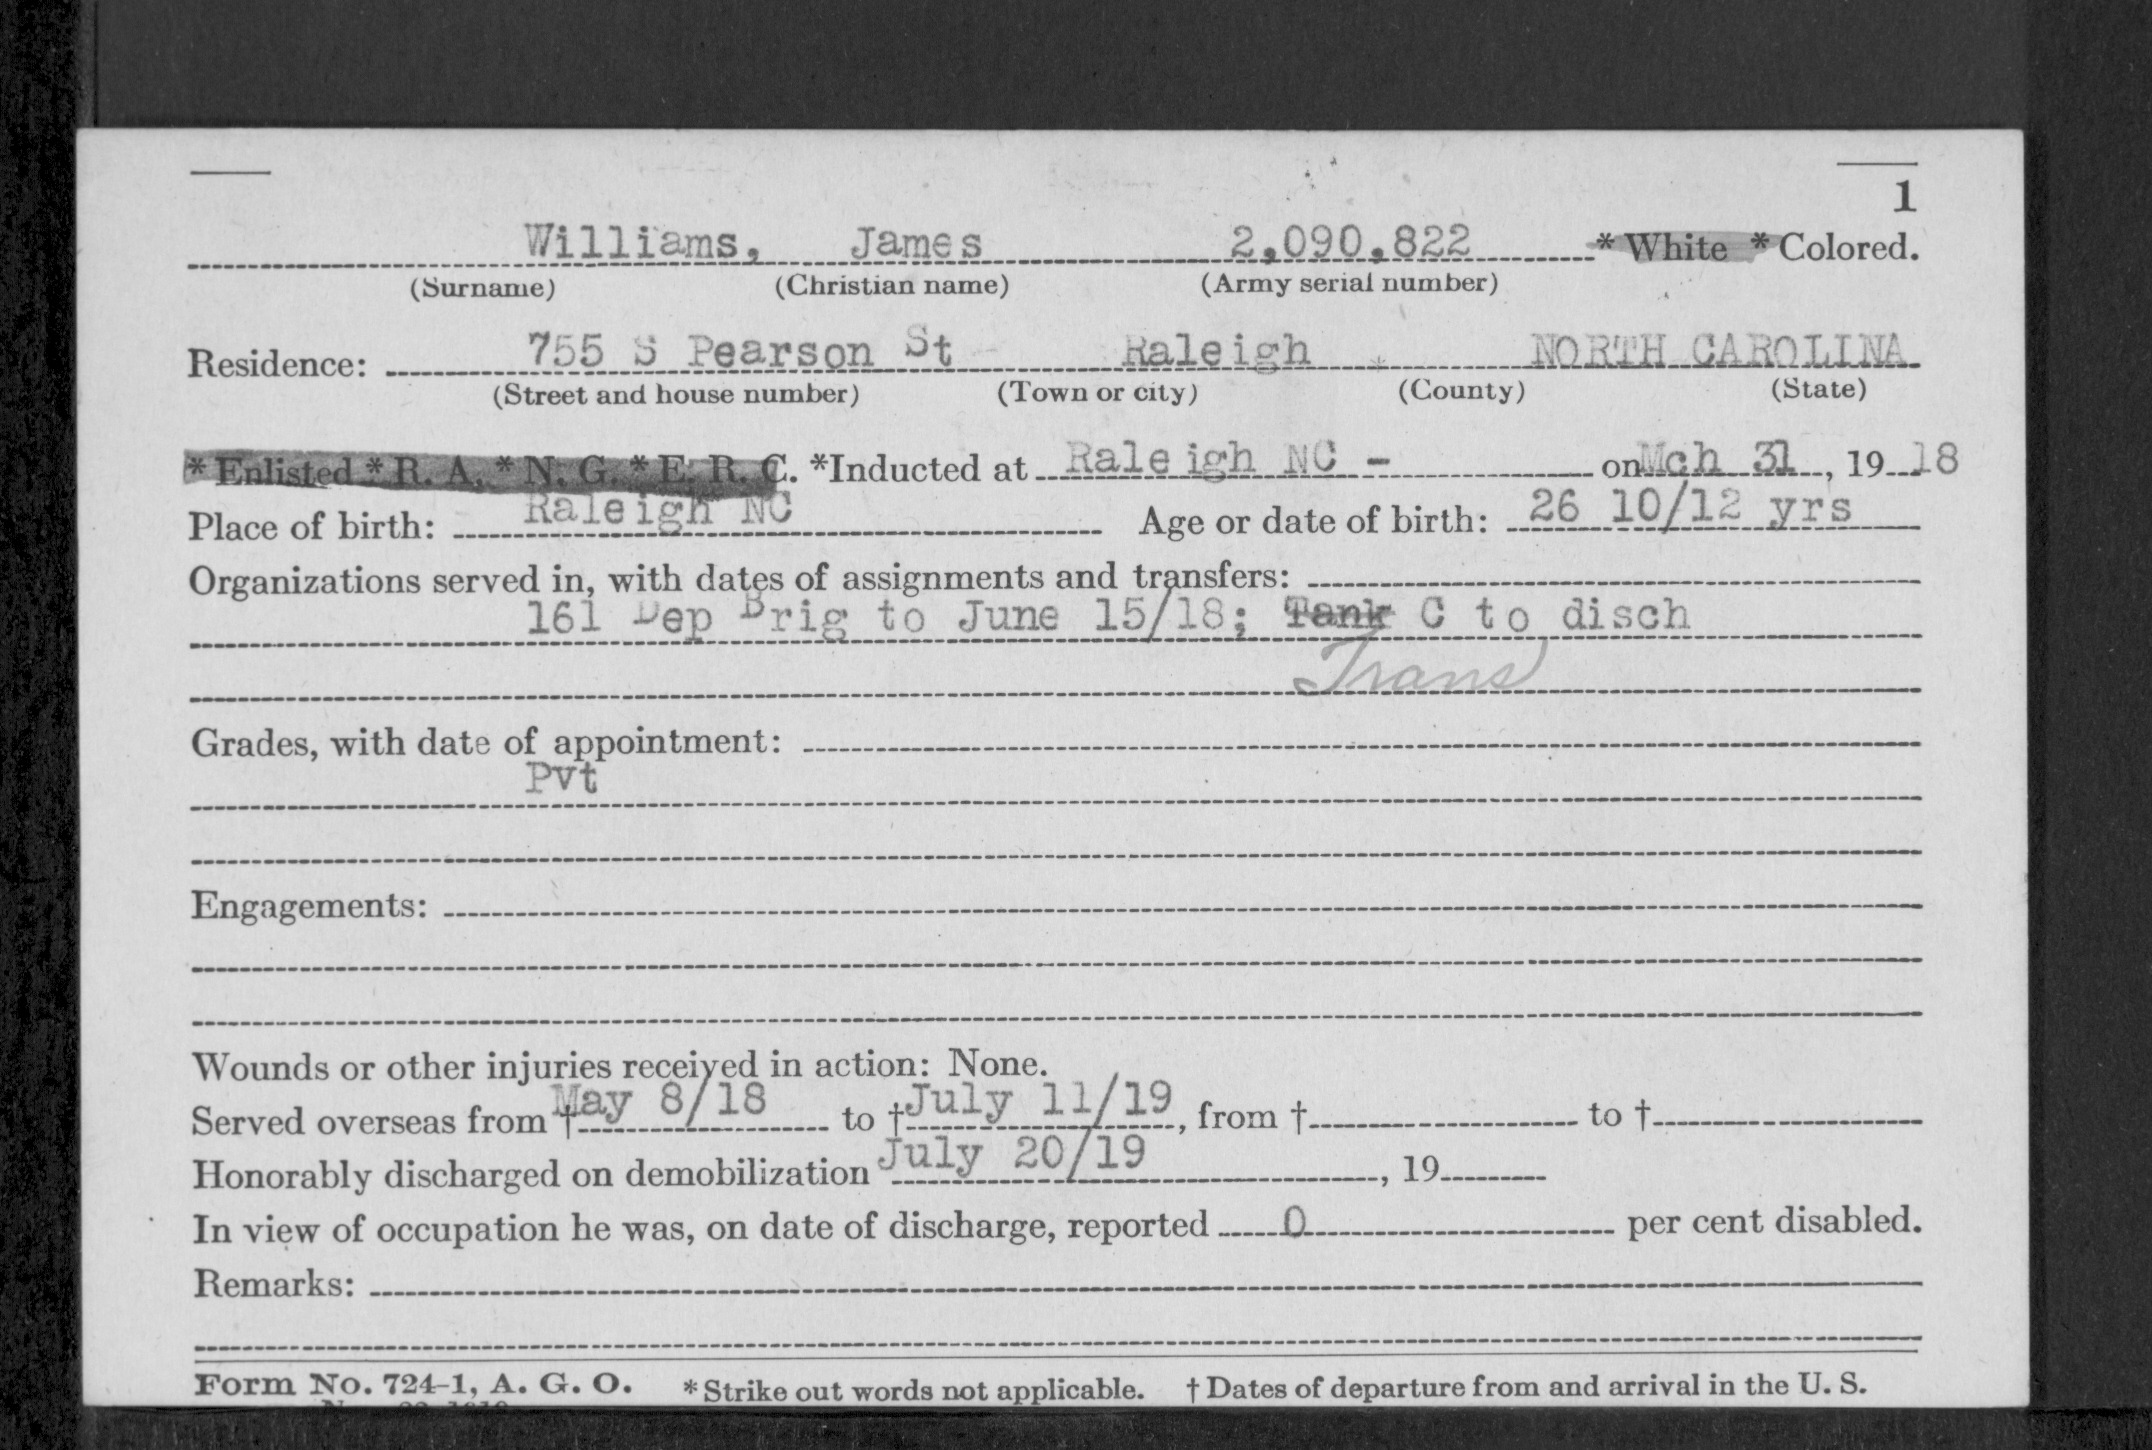 1
Williams, James 2,090,822 * White * Colored.
(Surname) (Christian name) (Army serial number)
Residence: 755 S Pearson St Raleigh NORTH CAROLINA
(Street and house number) (Town or city) (County) (State)
* Enlisted * R. A. * N. G. * E. R. C. *Inducted at Raleigh NC - on Mch 31, 19 18
Place of birth: Raleigh NC Age or date of birth: 26 10/12 yrs
Organizations served in, with dates of assignments and transfers:
161 Dep Brig to June 15/18; Tank C to disch
Trans
Grades, with date of appointment:
Pvt
Engagements:
Wounds or other injuries received in action: None.
Served overseas from † May 8/18 to † July 11/19, from † to †
Honorably discharged on demobilization July 20/19, 19
In view of occupation he was, on date of discharge, reported 0 per cent disabled.
Remarks:
Form No. 724-1, A. G. O. * Strike out words not applicable. † Dates of departure from and arrival in the U. S.